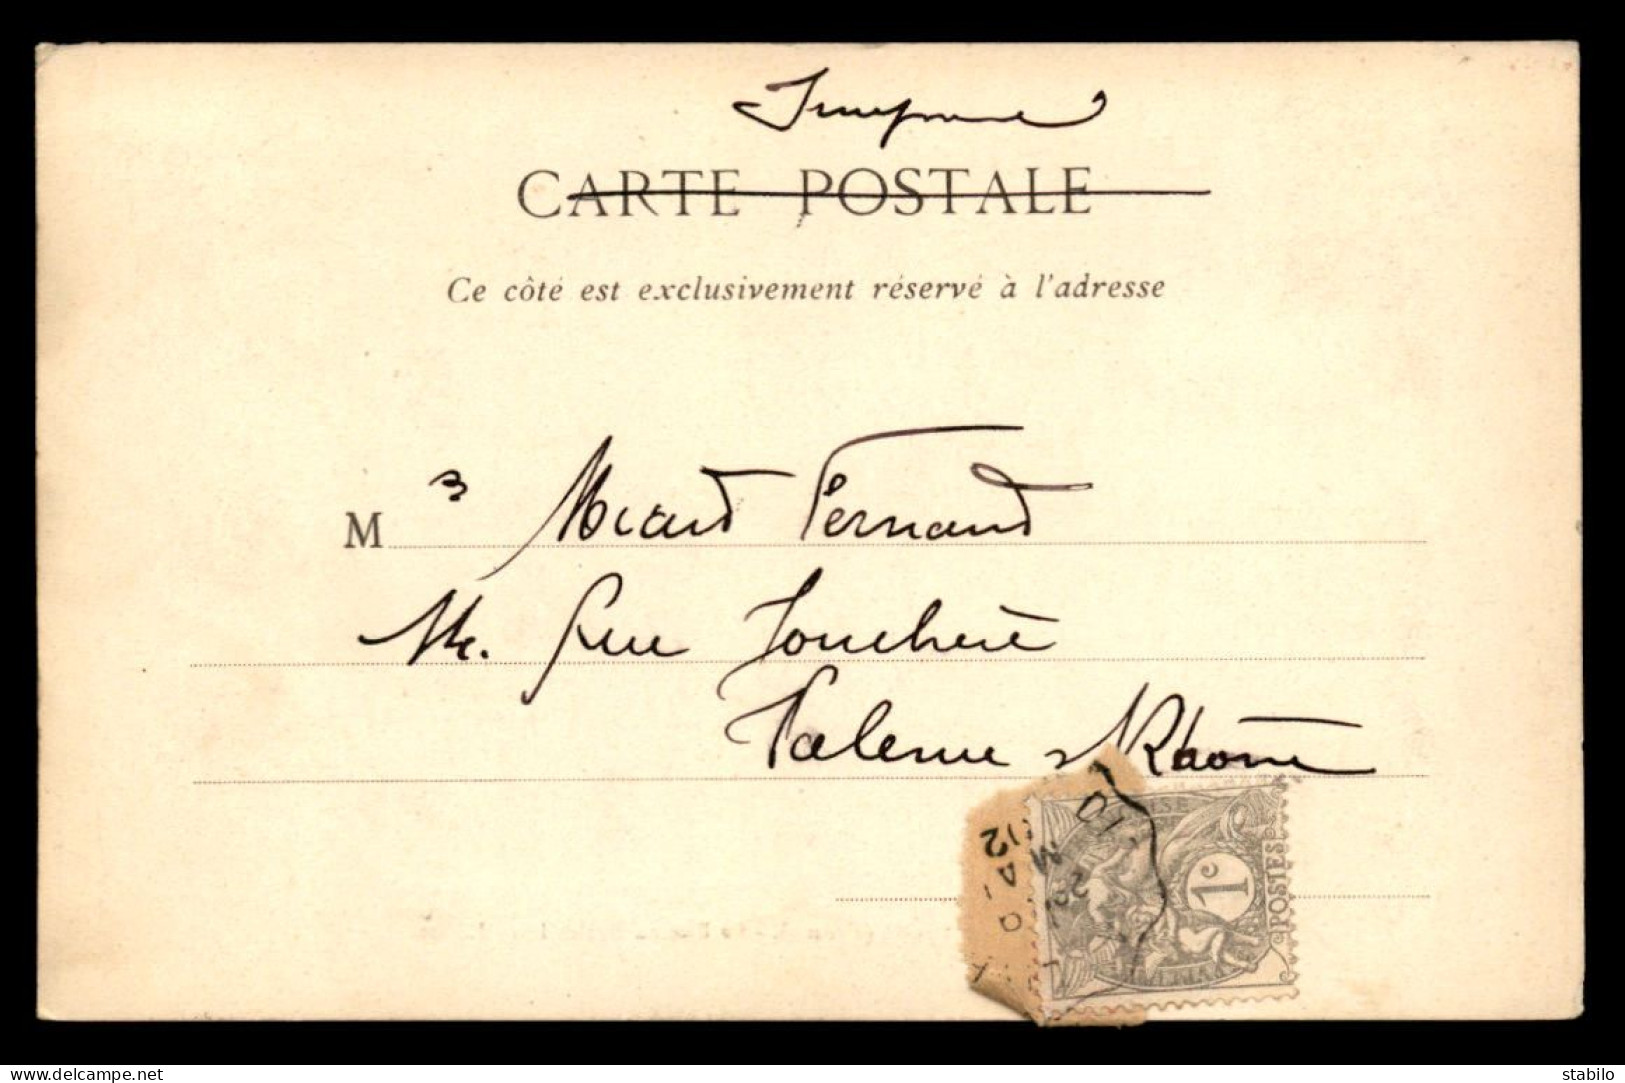 Imprimé
CARTE POSTALE
Ce côté est exclusivement réservé à l'adresse
M r Fernand
Rue Jonchère
Valence s/ Rhône
1c
POSTES
delcampe.net
stabilo